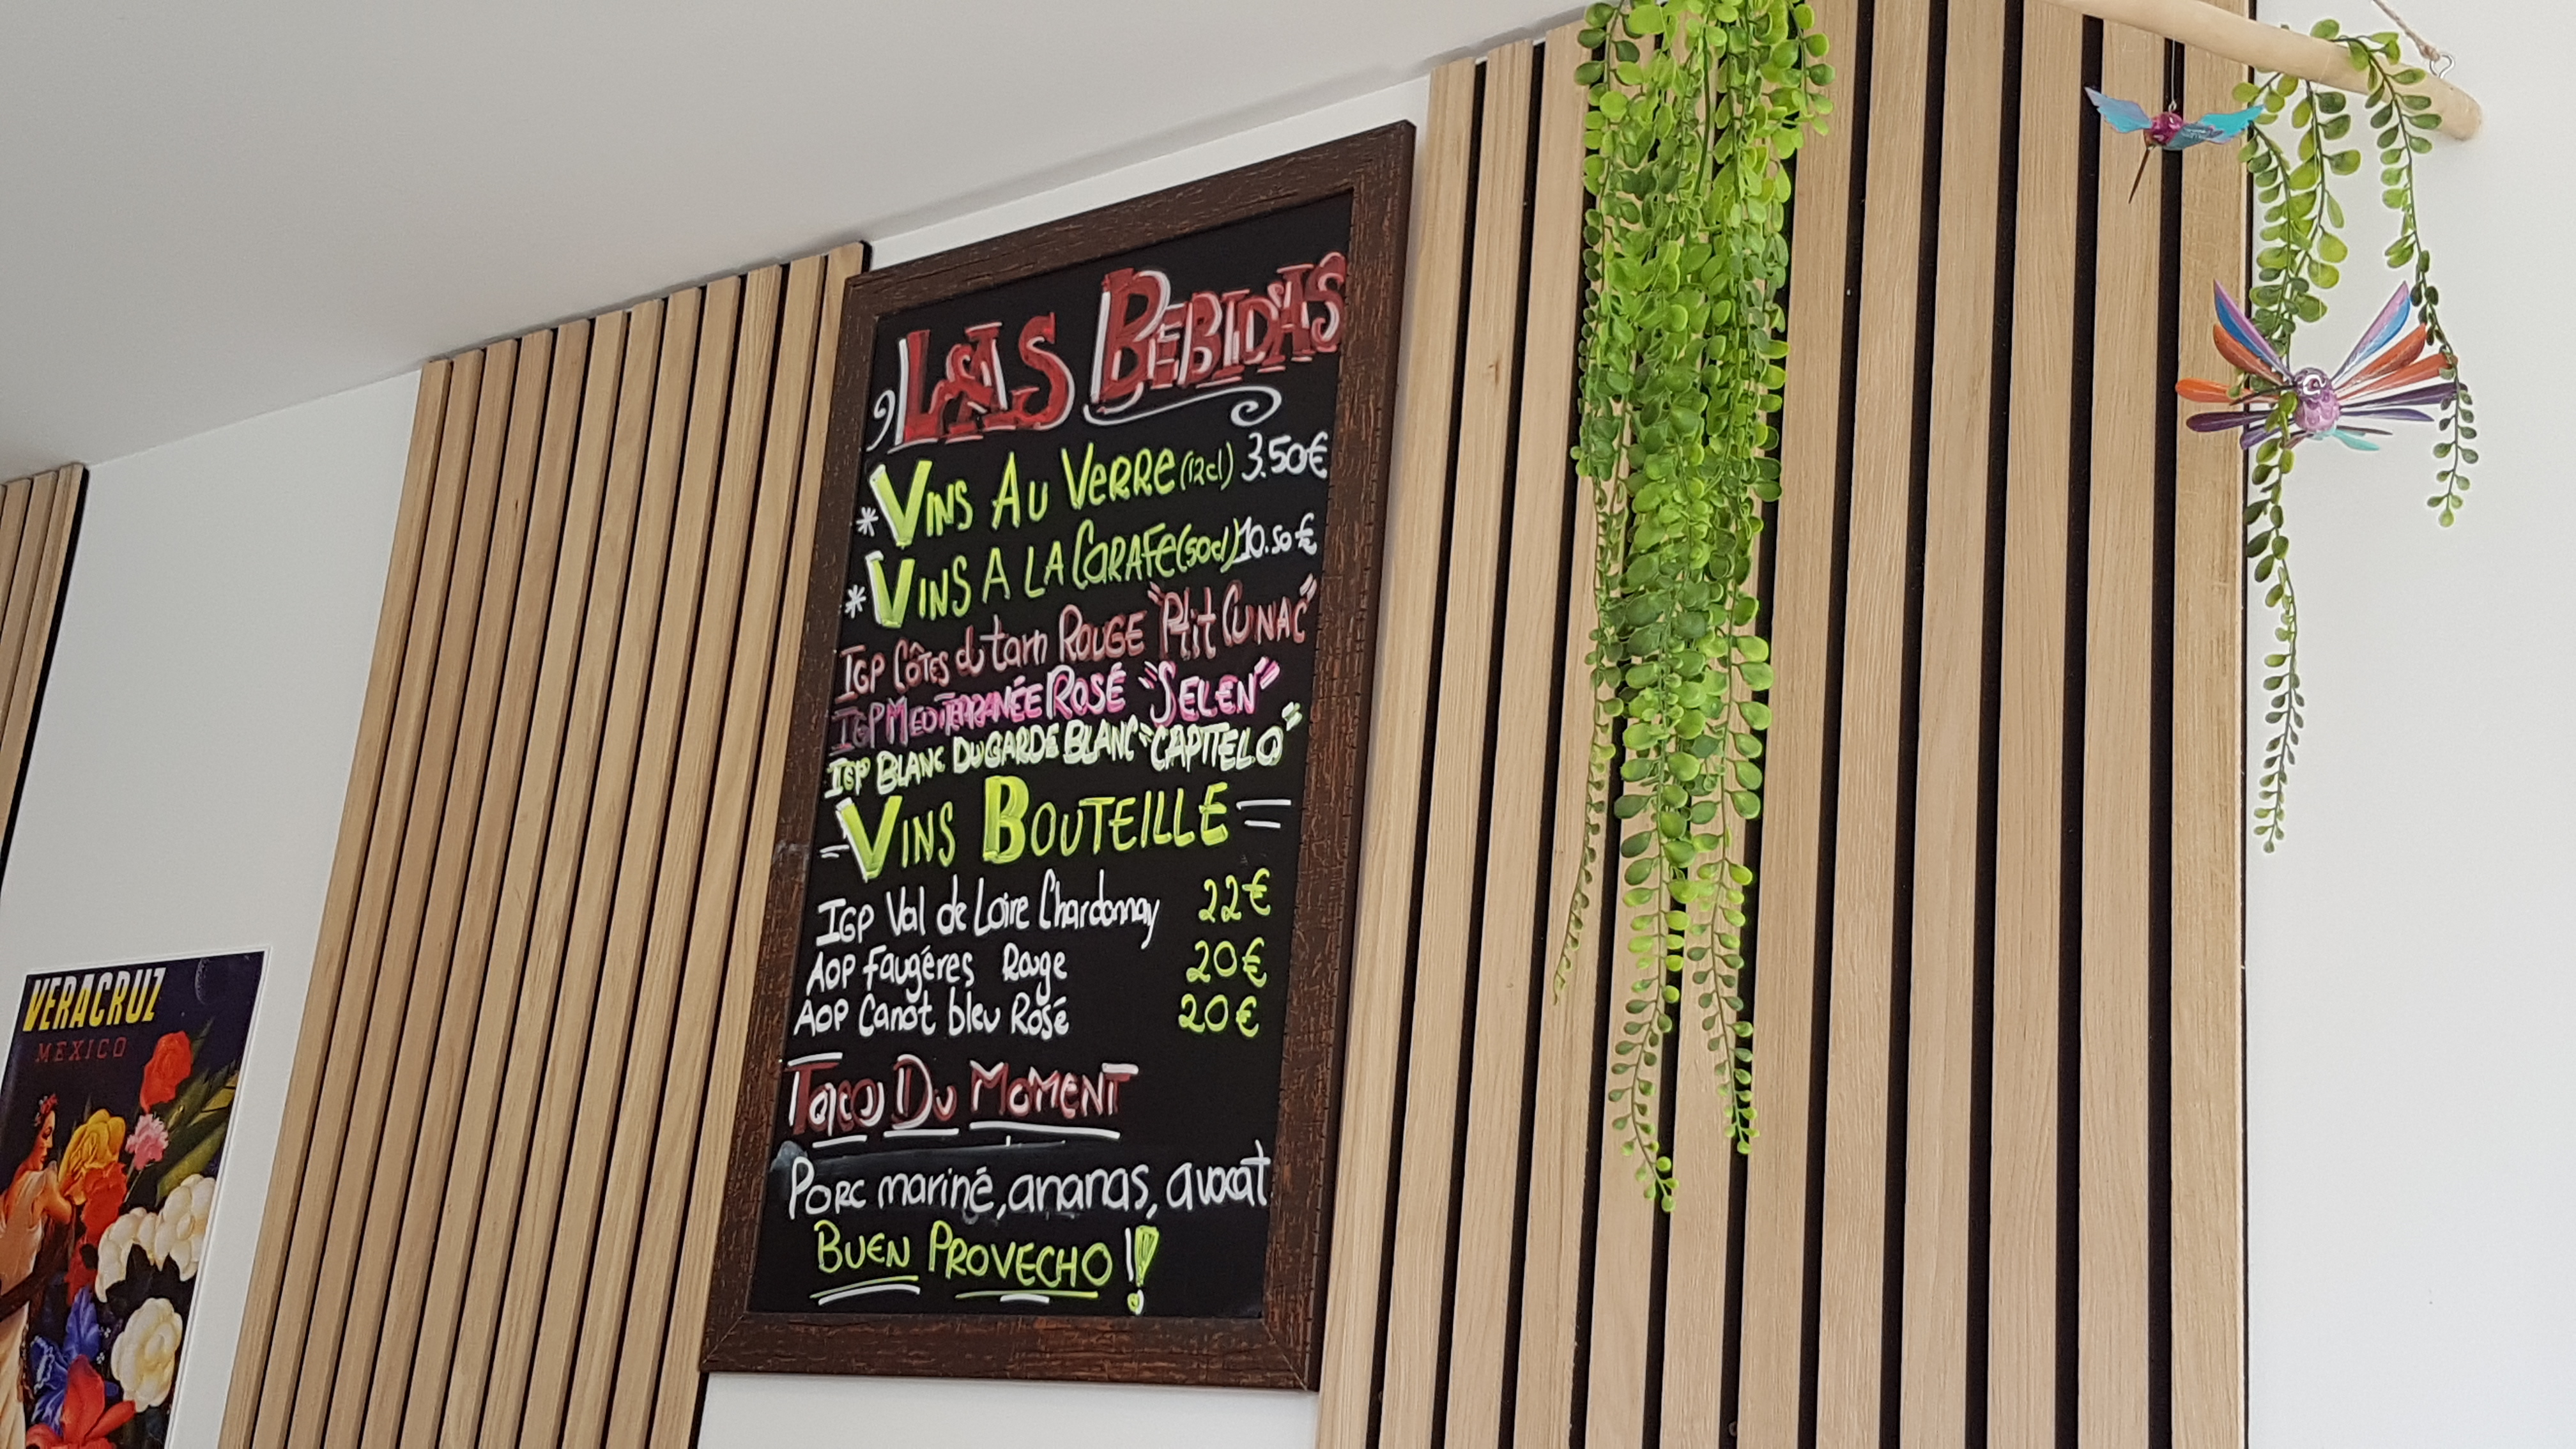 VERACRUZ
MEXICO
LAS BEBIDAS
* VINS AU VERRE (12cl) 3.50€
* VINS A LA CARAFE (50cl) 10.50€
IGP CÔTES du tarn ROUGE "P'tit CUNAC"
IGP MEDITERRANÉE ROSÉ "SELEN"
IGP BLANC DU GARDE BLANC "CAPITELO"
=VINS BOUTEILLE=
IGP Val de Loire Chardonnay 22€
AOP Faugéres Rouge 20€
AOP Canot bleu Rosé 20€
TACO DU MOMENT
PORC mariné, ananas, avocat
BUEN PROVECHO !!